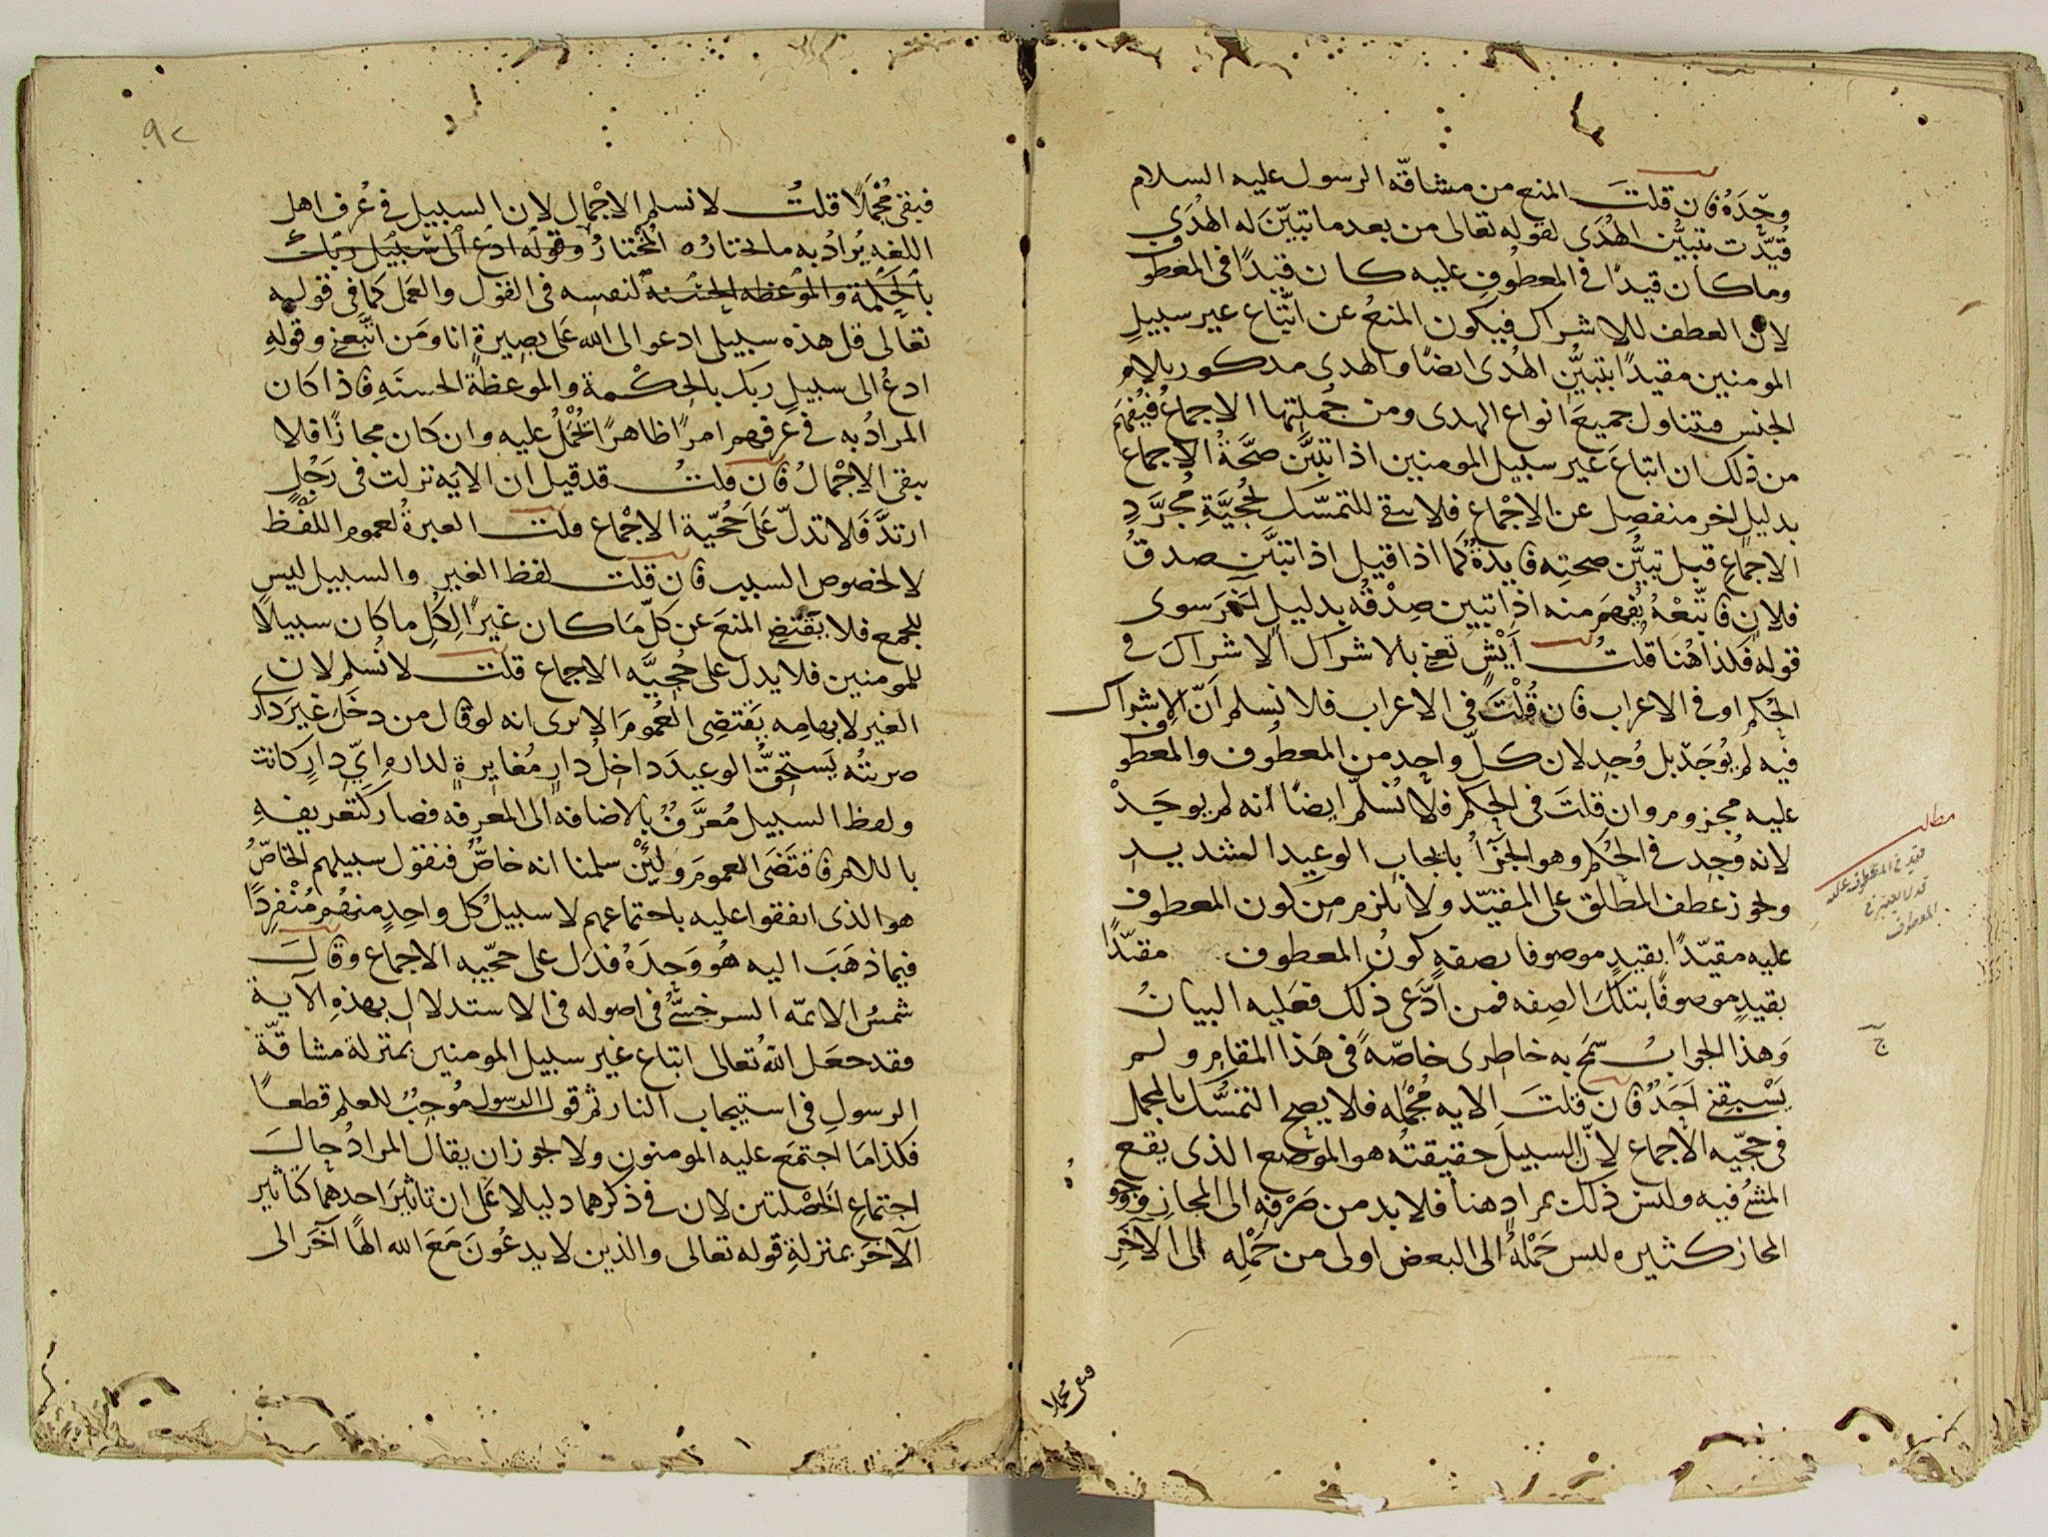 وحْدَهُ فان قلتَ المنع من مشاقّه الرسول عليه السلام
قُيّدَت بتبيُّن الهُدَى لقوله تعالى من بعد ما تبيَّنَ له الهُدَى
وما كان قيدًا فى المعطُوفِ عليه كان قيدًا فى المعطُوف
لانّ العطف للاشراك فيكون المنعُ عن اتّباع غير سبيلِ
المومنين مقيدًا بتبيُّنِ الهُدى ايضًا والهدى مدكور بلام
الجنس فيتناول جميعَ انواع الهدى ومن جُملتها الاجماعُ فيُفهَم
من ذلك ان اتباعَ غير سبيل المومنين اذا تبيَّن صحَّةُ الاجماع
بدليلٍ اخر منفصِل عن الاجماع فلا يبقى للتمسّك لحجيَّةِ مُجرَّدِ
الاجماعِ قبل تبيُّن صحتِه فايدةٌ كما اذا قيل اذا تبيَّن صدقُ
فلانٍ فاتّبعْهُ يُفهَم منه اذا تبين صِدْقُه بدليلٍ اخَر سوى
قوله فكذا هُنا قلتُ اَيْش تعنى بالاشراك الاشراكَ فى
الحُكم او فى الاعراب فان قُلْتَ فى الاعراب فلا نسلم اَنّ الاشراك
فيه لم يُوجَدْ بل وُجد لان كلَّ واحدٍ من المعطُوف والمعطُوف
عليه مجزوم وان قلتَ فى الحكم فلا نُسلّم ايضًا انه لم يوجَدْ
لانه وُجد فى الحُكم وهو الجزآءُ بايجابِ الوعيد الشديد
ويجوز عطف المطلق على المقيّد ولا يلزم من كون المعطوف
عليه مقيّدًا بقيدٍ موصوفا بصفه كونُ المعطوف مقيّدًا
بقيدٍ موصوفًا بتلك الصِفه فمن ادَّعى ذلك فعَليه البيانُ
وَهذا الجوابُ سَمَحَ به خاطرى خاصّةً فى هَذا المقام ولم
يَسْبقنى اَحَدٌ فان قلتَ الايه مُجْمله فلا يصح التمسُّك بالمجمل
فى حجّيه الاجماع لانّ السبيل حقيقتُه هو الموضع الذى يقع
المشىُ فيه وليس ذلك بمرادٍ هنا فلا بد من صَرْفِه الى المجازِ ووجوه
المجاز كثيره ليس حَمْلهُ الى البعض اولى من حَمْلِه الى الآخَرِ
فبقى مجملا
مطلب
قيد فى المعطوف عليه
المعطوف
٩٢
فبقى مُجْمَلًا قلتُ لا نسلم الاجْمال لان السبيل فى عُرف اهل
اللغه يُرادُ به ما يختارُه المُخْتارُ وقوله ادع الى سبيل ربك
بالحكمة والموعظه الحسنه لنفسِه فى القول والعَمل كما فى قوله
تعالى قل هذه سبيلى ادعو الى الله عَلى بصيرةٍ انا ومَن اتَّبعنى وقولهِ
ادعُ الى سبيلِ ربك بالحِكْمة والموعظة الحسنَهِ فاذا كان
المرادُ به فى عُرفهم امرًا ظاهرًا يُحْمَلُ عليه وان كان مجازًا فلا
يبقى الاجْمالُ فان قلتُ قد قيل ان الايَه نزلت فى رَجُلٍ
ارتدَّ فَلا تدلّ عَلى حُجّيّة الاجْماع قلت العبرةُ لعموم اللفْظ
لا لخصوص السبب فان قلتَ لفظ الغير والسبيل ليس
للجمع فلا يَقتَضِى المنعَ عن كلّ مَا كان غيرًا لِكُلِ ما كان سبيلًا
للمومنين فلا يدل على حُجيَّه الاجماع قلت لا نُسلم لان
الغير لابهامِه يَقتضِى العُمومَ الا يرى انه لو قال من دخَلَ غيرَ دارى
ضربتُه يَستحِقُّ الوعيدَ داخِلُ دارٍ مُغايرةٍ لداره ايّ دارٍ كانت
ولفظ السبيل مُعرَّفٌ بالاضافه الى المعرفه فصار كتعريفهِ
باللام فاقتَضَى العمومَ ولئِنْ سلمنا انه خاصٌ فنقول سبيلهم الخاصّ
هو الذى اتفقوا عليه باجتماعهم لا سبيلُ كُل واحدٍ منهُم مُنْفرِدًا
فيما ذهَبَ اليه هُو وَحدَهُ فدَل على حجّيه الاجماع وقالَ
شمسُ الايمّه السرخسىُّ فى اصوله فى الاستدلال بهذهِ الآية
فقد جعَل اللهُ تعالى اتباع غير سبيل المومنين بمنزلة مشاقّة
الرسولِ فى استيجاب النار ثم قولُ الرسول مُوجبٌ للعلم قطعًا
فكذا مَا اجتمَع عليه المومنون ولا يجوز ان يقال المرادُ حالَ
اجتماعِ الخَصْلتين لان فى ذكرهما دليلا عَلى ان تاثيرَ احدهما كتأثير
الآخَر بمنزلةِ قوله تعالى والذين لا يدعُونَ مَعَ الله الهًا آخَر الى